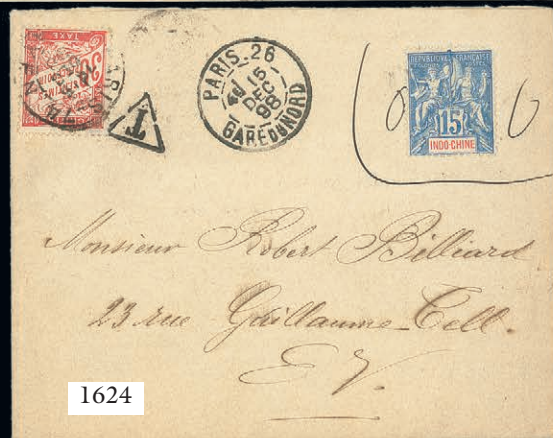 30
TAXE
T
PARIS_26
15
DEC
98
GARE DU NORD
REPUBLIQUE FRANCAISE
15
INDO-CHINE
Monsieur Robert Billiard
23 rue Guillaume-Tell.
E V.
1624